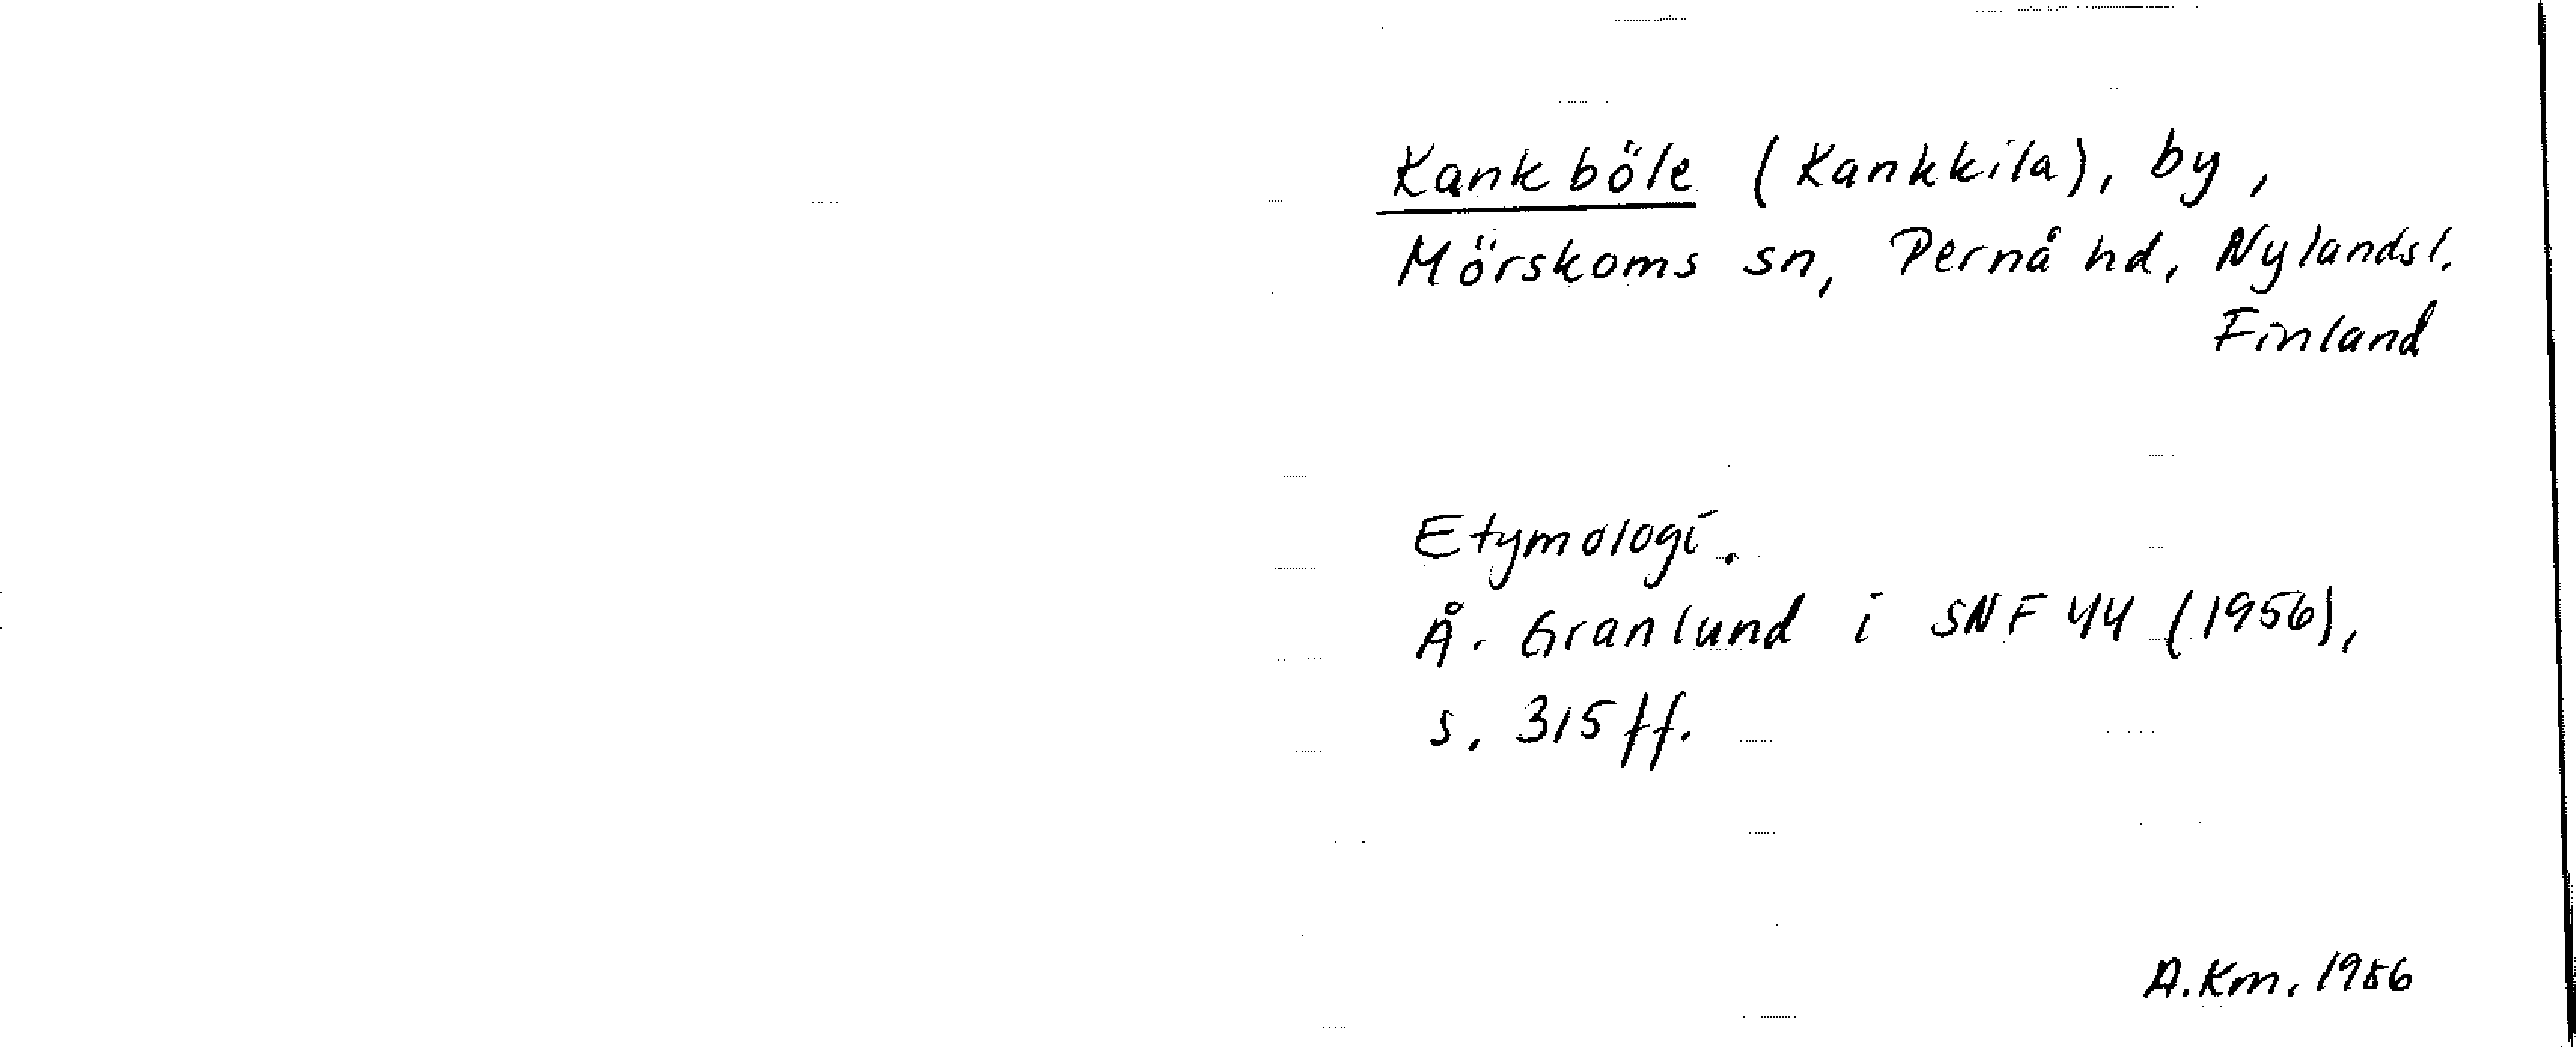 Kankböle (Kankkila), by,
Mörskoms sn, Pernå hd, Nylandsl.
Finland
Etymologi.
Å. Granlund i SNF 44 (1956),
s. 315 ff.
A.Km. 1986